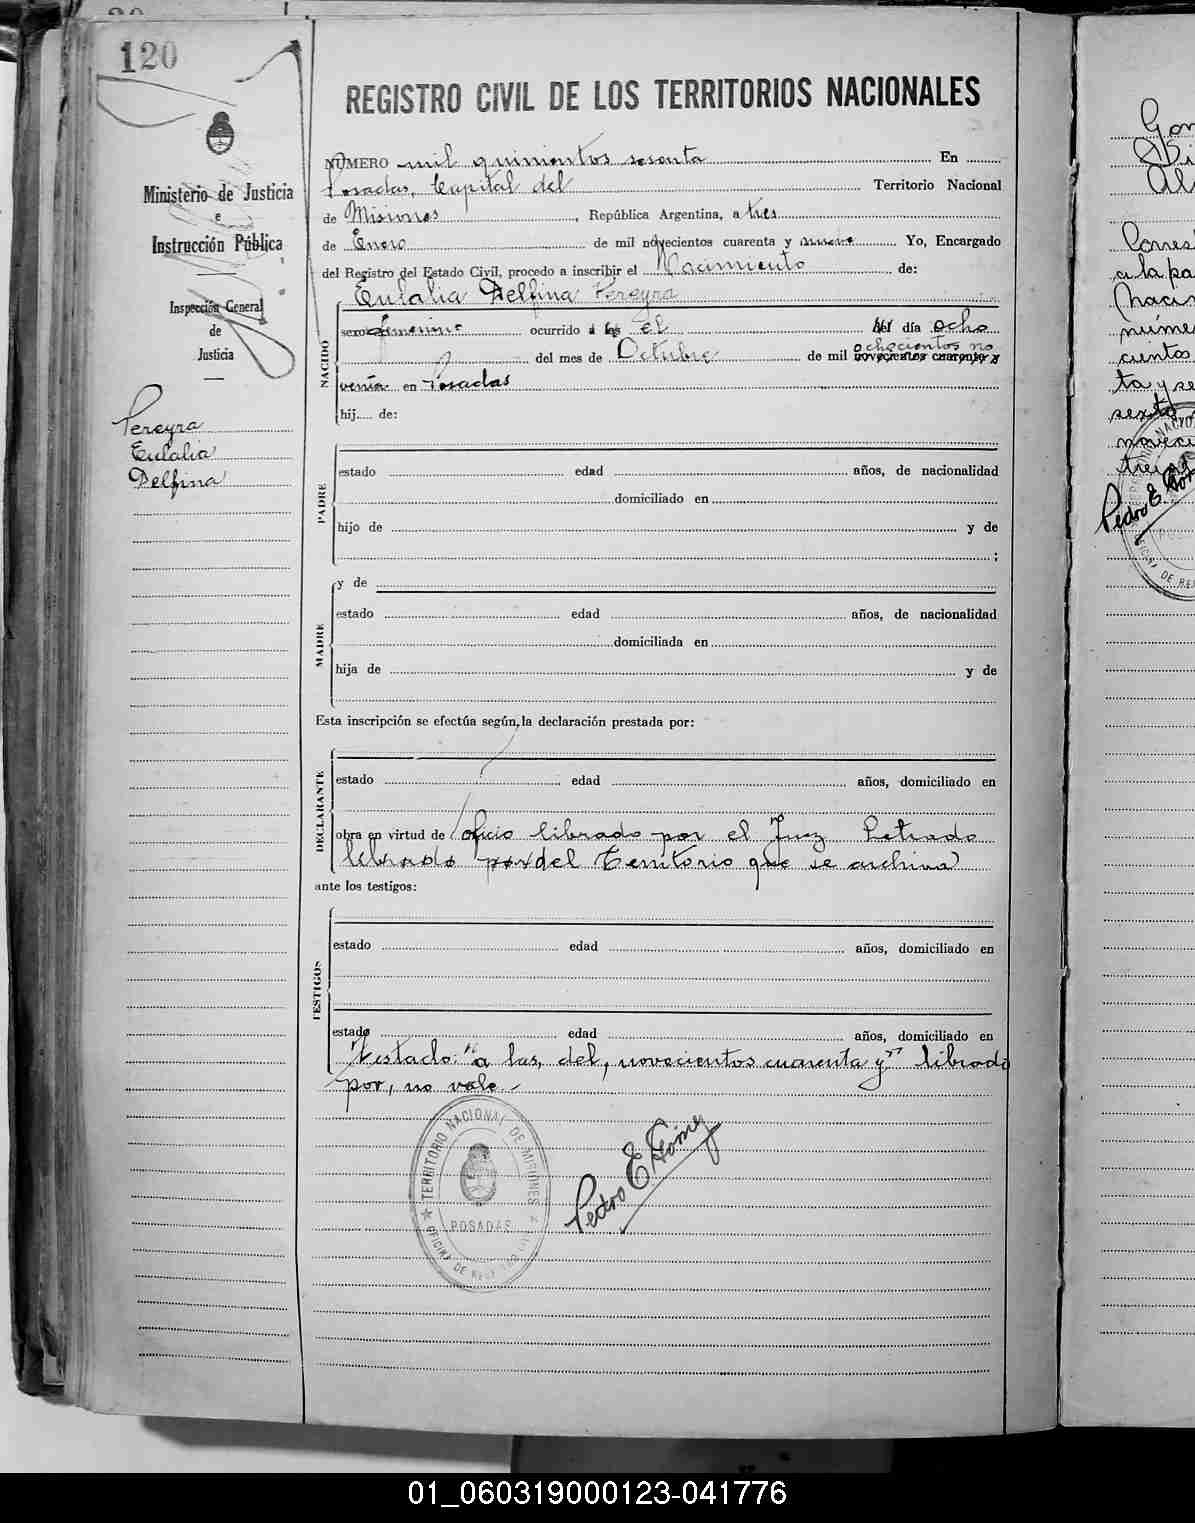 120
Ministerio de Justicia
e
Instrucción Pública
Inspección General
de
Justicia
Pereyra
Eulalia
Delfina
REGISTRO CIVIL DE LOS TERRITORIOS NACIONALES
NÚMERO mil quinientos sesenta En
Posadas, Capital del Territorio Nacional
de Misiones, República Argentina, a tres
de Enero de mil novecientos cuarenta y nueve Yo, Encargado
del Registro del Estado Civil, procedo a inscribir el Nacimiento de:
Eulalia Delfina Pereyra
NACIDO
sexo femenino ocurrido a las el del día ocho
ochocientos no
del mes de Octubre de mil novecientos cuarenta y
venta en Posadas
hij.... de:
PADRE
estado edad años, de nacionalidad
domiciliado en
hijo de y de
;
MADRE
y de
estado edad años, de nacionalidad
domiciliada en
hija de y de
Esta inscripción se efectúa según la declaración prestada por:
DECLARANTE
estado edad años, domiciliado en
obra en virtud de oficio librado por el Juez Letrado
librado por del Territorio que se archiva
ante los testigos:
TESTIGOS
estado edad años, domiciliado en
estado edad años, domiciliado en
Testado: "a las, del, novecientos cuarenta y" librado
por, no vale.-
TERRITORIO NACIONAL DE MISIONES
POSADAS
OFICINA DE
Pedro E. Gómez
Corres
a la pa
Nacim
núme
cientos
ta y se
sexto
noveci
Pedro E. Góm
OFICINA DE RE
01_060319000123-041776